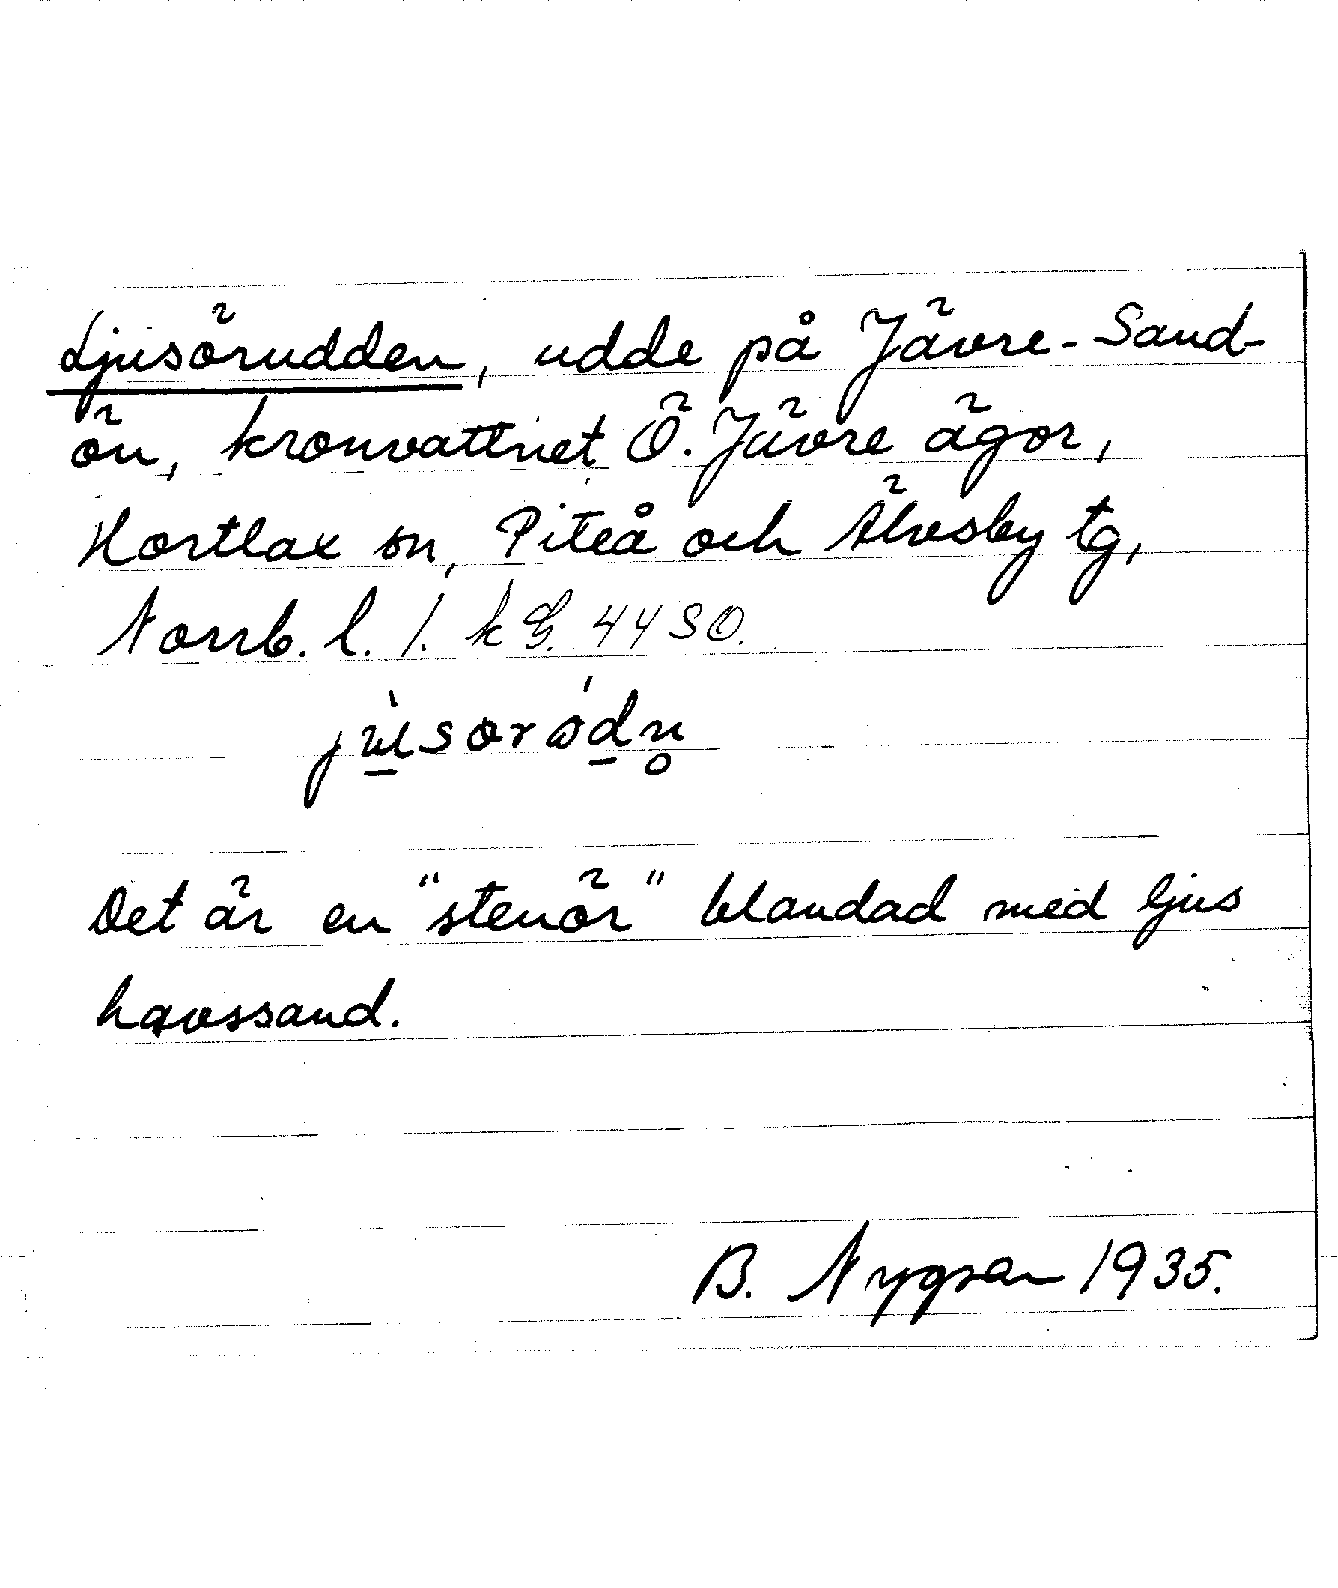 Ljusörudden, udde på Jävre-Sand-
ön, kronvattnet Ö. Jävre ägor,
Hortlax sn, Piteå och Älvsby tg,
Norrb. l. 1. k G. 4430.
Det är en "stenör" blandad med ljus
havssand.
B. Nygren 1935.